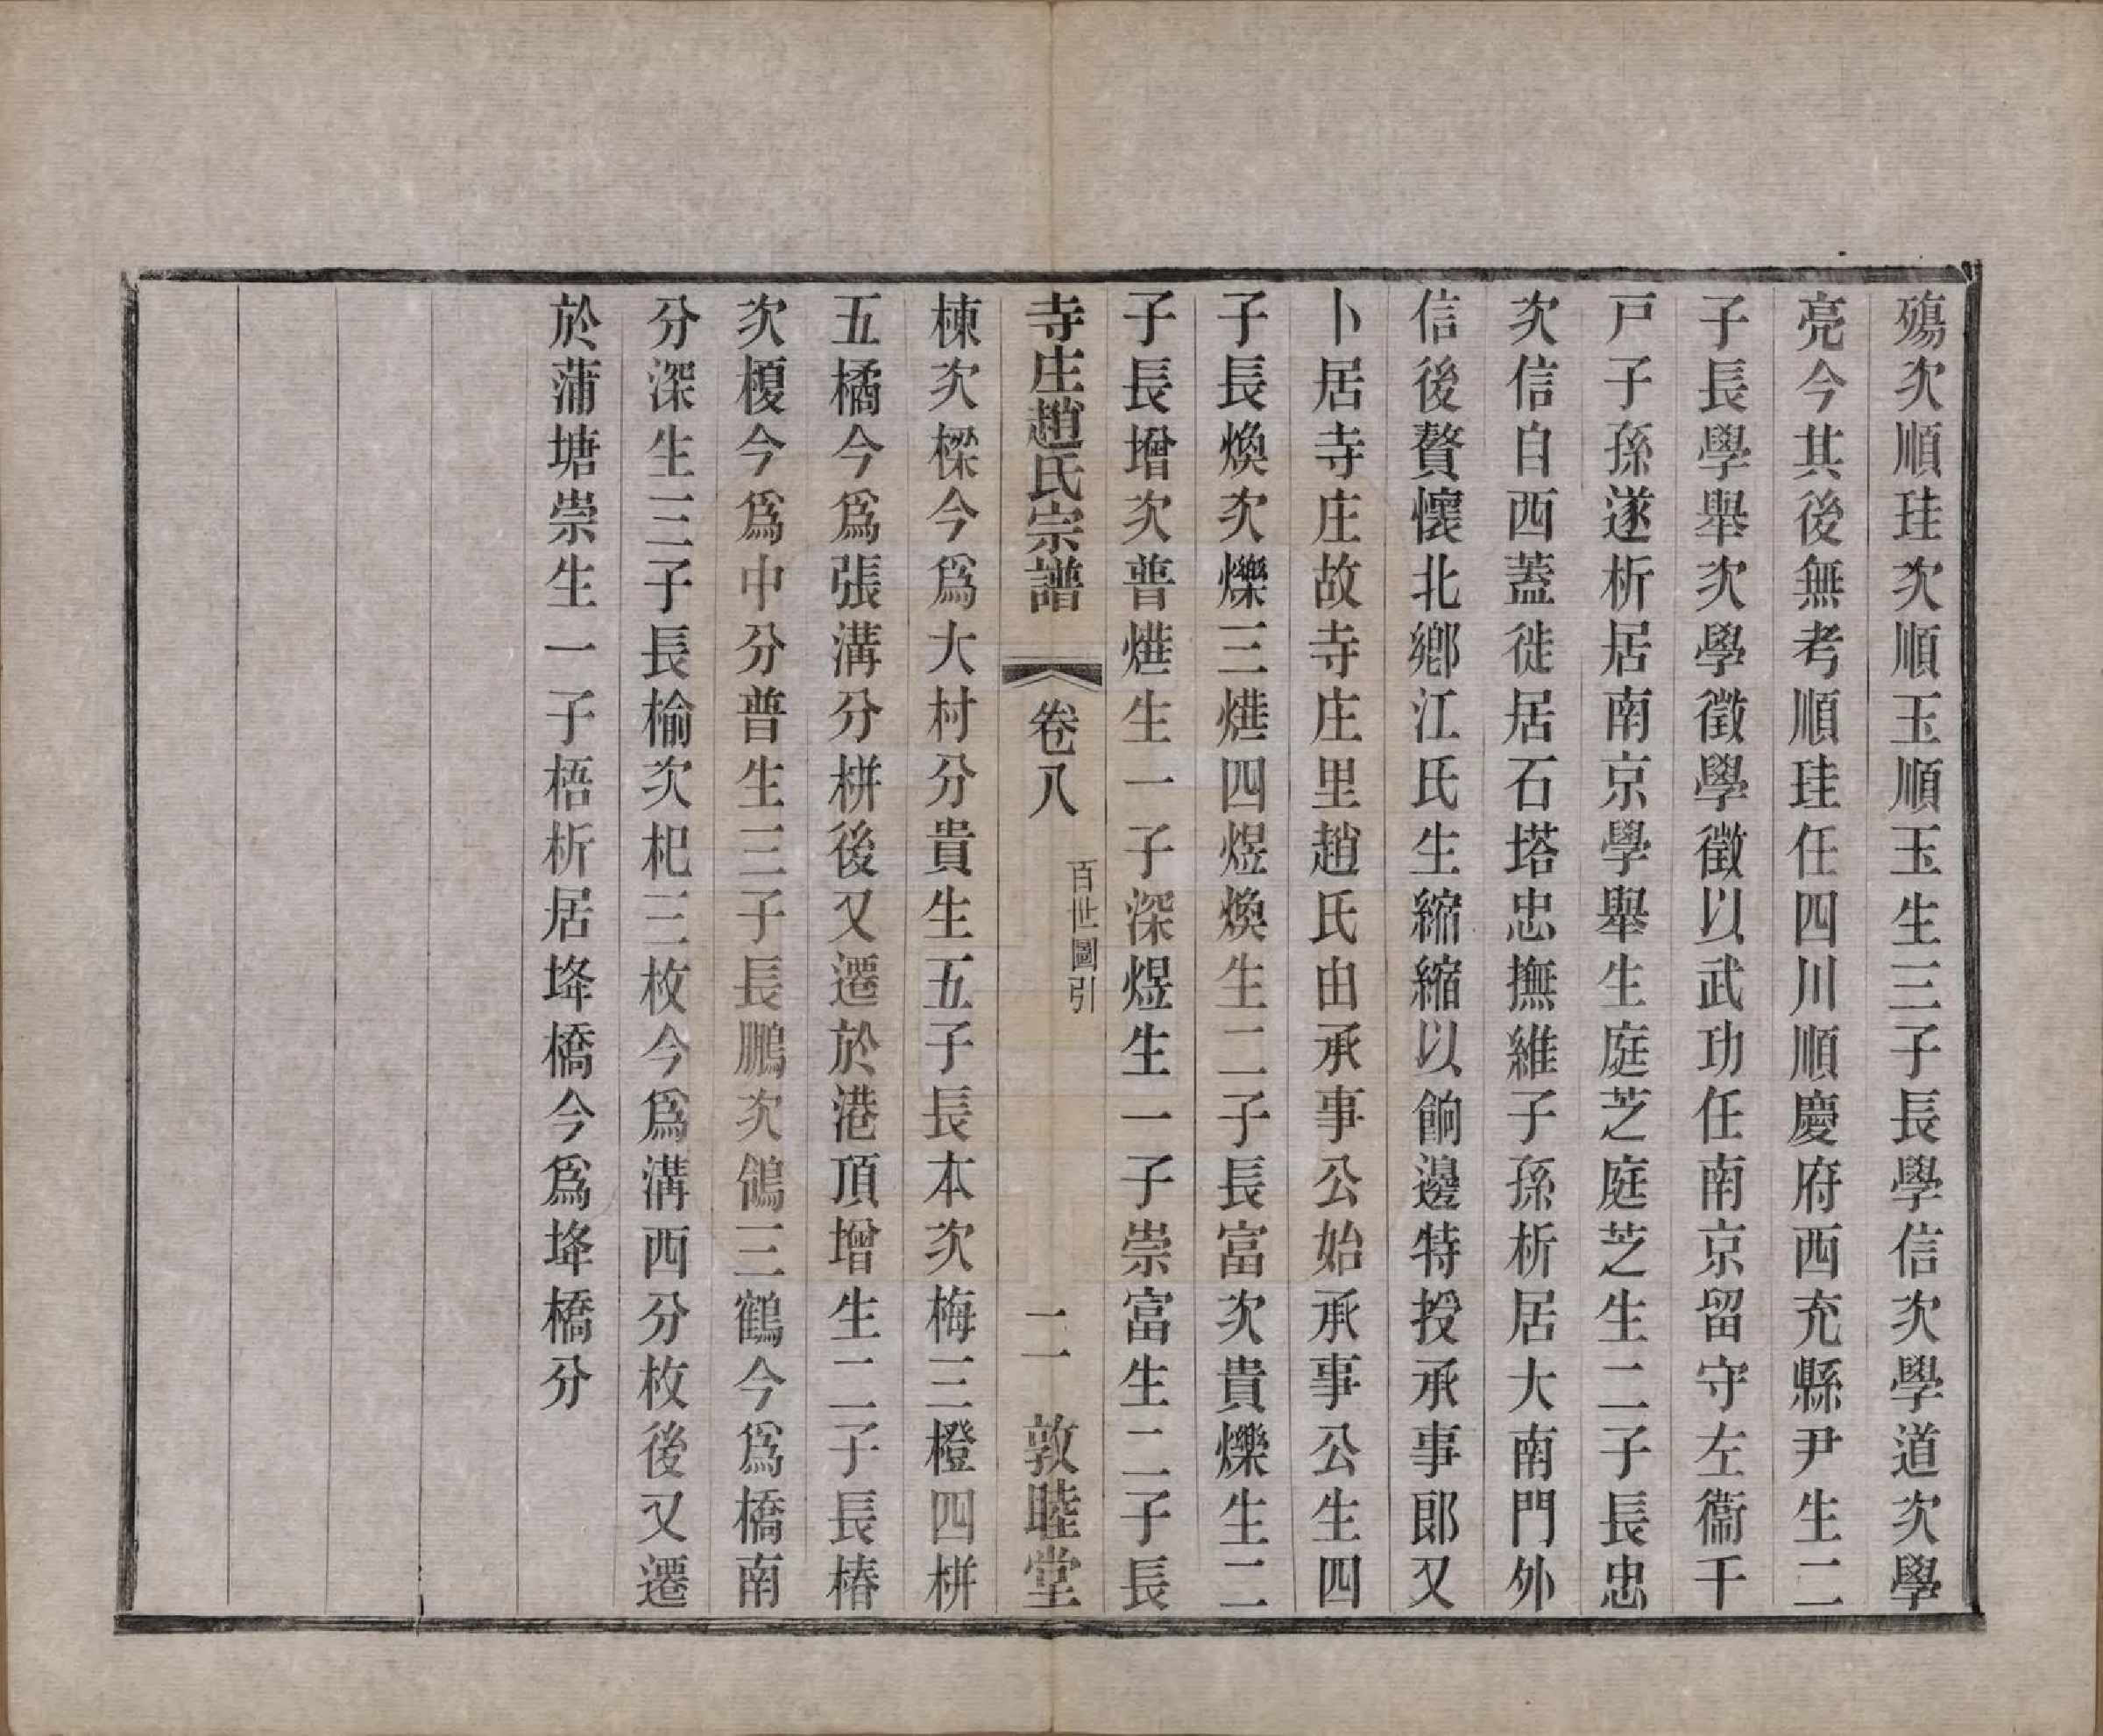 殤次順珪次順玉順玉生三子長學信次學道次學
亮今其後無考順珪任四川順慶府西充縣尹生二
子長學舉次學徵學徵以武功任南京留守左衞千
戸子孫遂析居南京學舉生庭芝庭芝生二子長忠
次信自西蓋徙居石塔忠撫維子孫析居大南門外
信後贅懷北鄉江氏生縮縮以餉邊特授承事郞又
卜居寺庄故寺庄里趙氏由承事公始承事公生四
子長煥次爍三㷸四煜煥生二子長富次貴爍生二
子長增次普㷸生一子深煜生一子崇富生二子長
寺庄趙氏宗譜 卷八 百世圖引 二 敦睦堂
棟次樑今爲大村分貴生五子長本次梅三橙四栟
五橘今爲張溝分栟後又遷於港頂增生二子長椿
次榎今爲中分普生三子長鵬次鴿三鶴今爲橋南
分深生三子長榆次杞三枚今爲溝西分枚後又遷
於蒲塘崇生一子梧析居垰橋今爲垰橋分